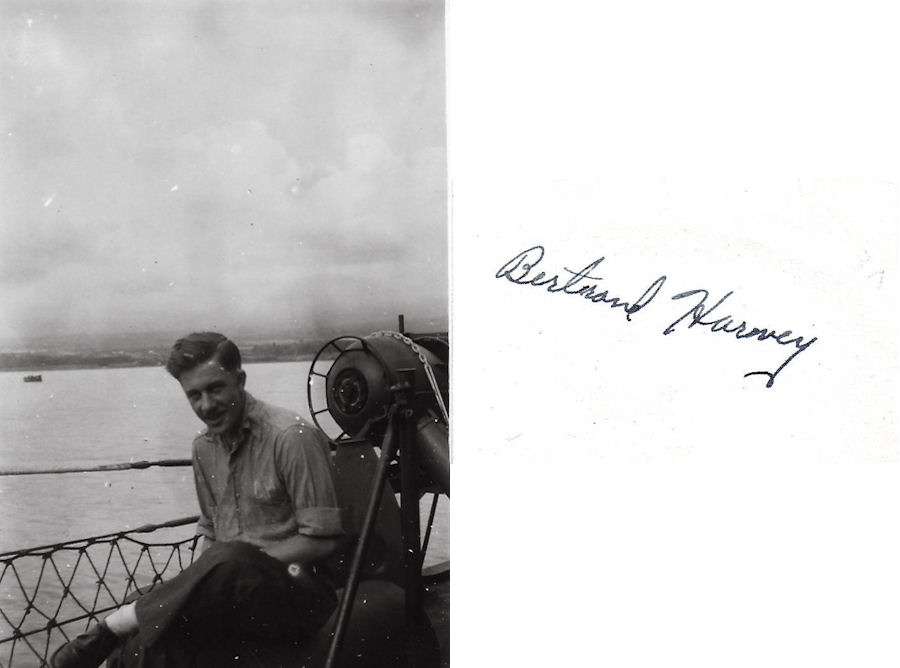 Bertrand Harvey